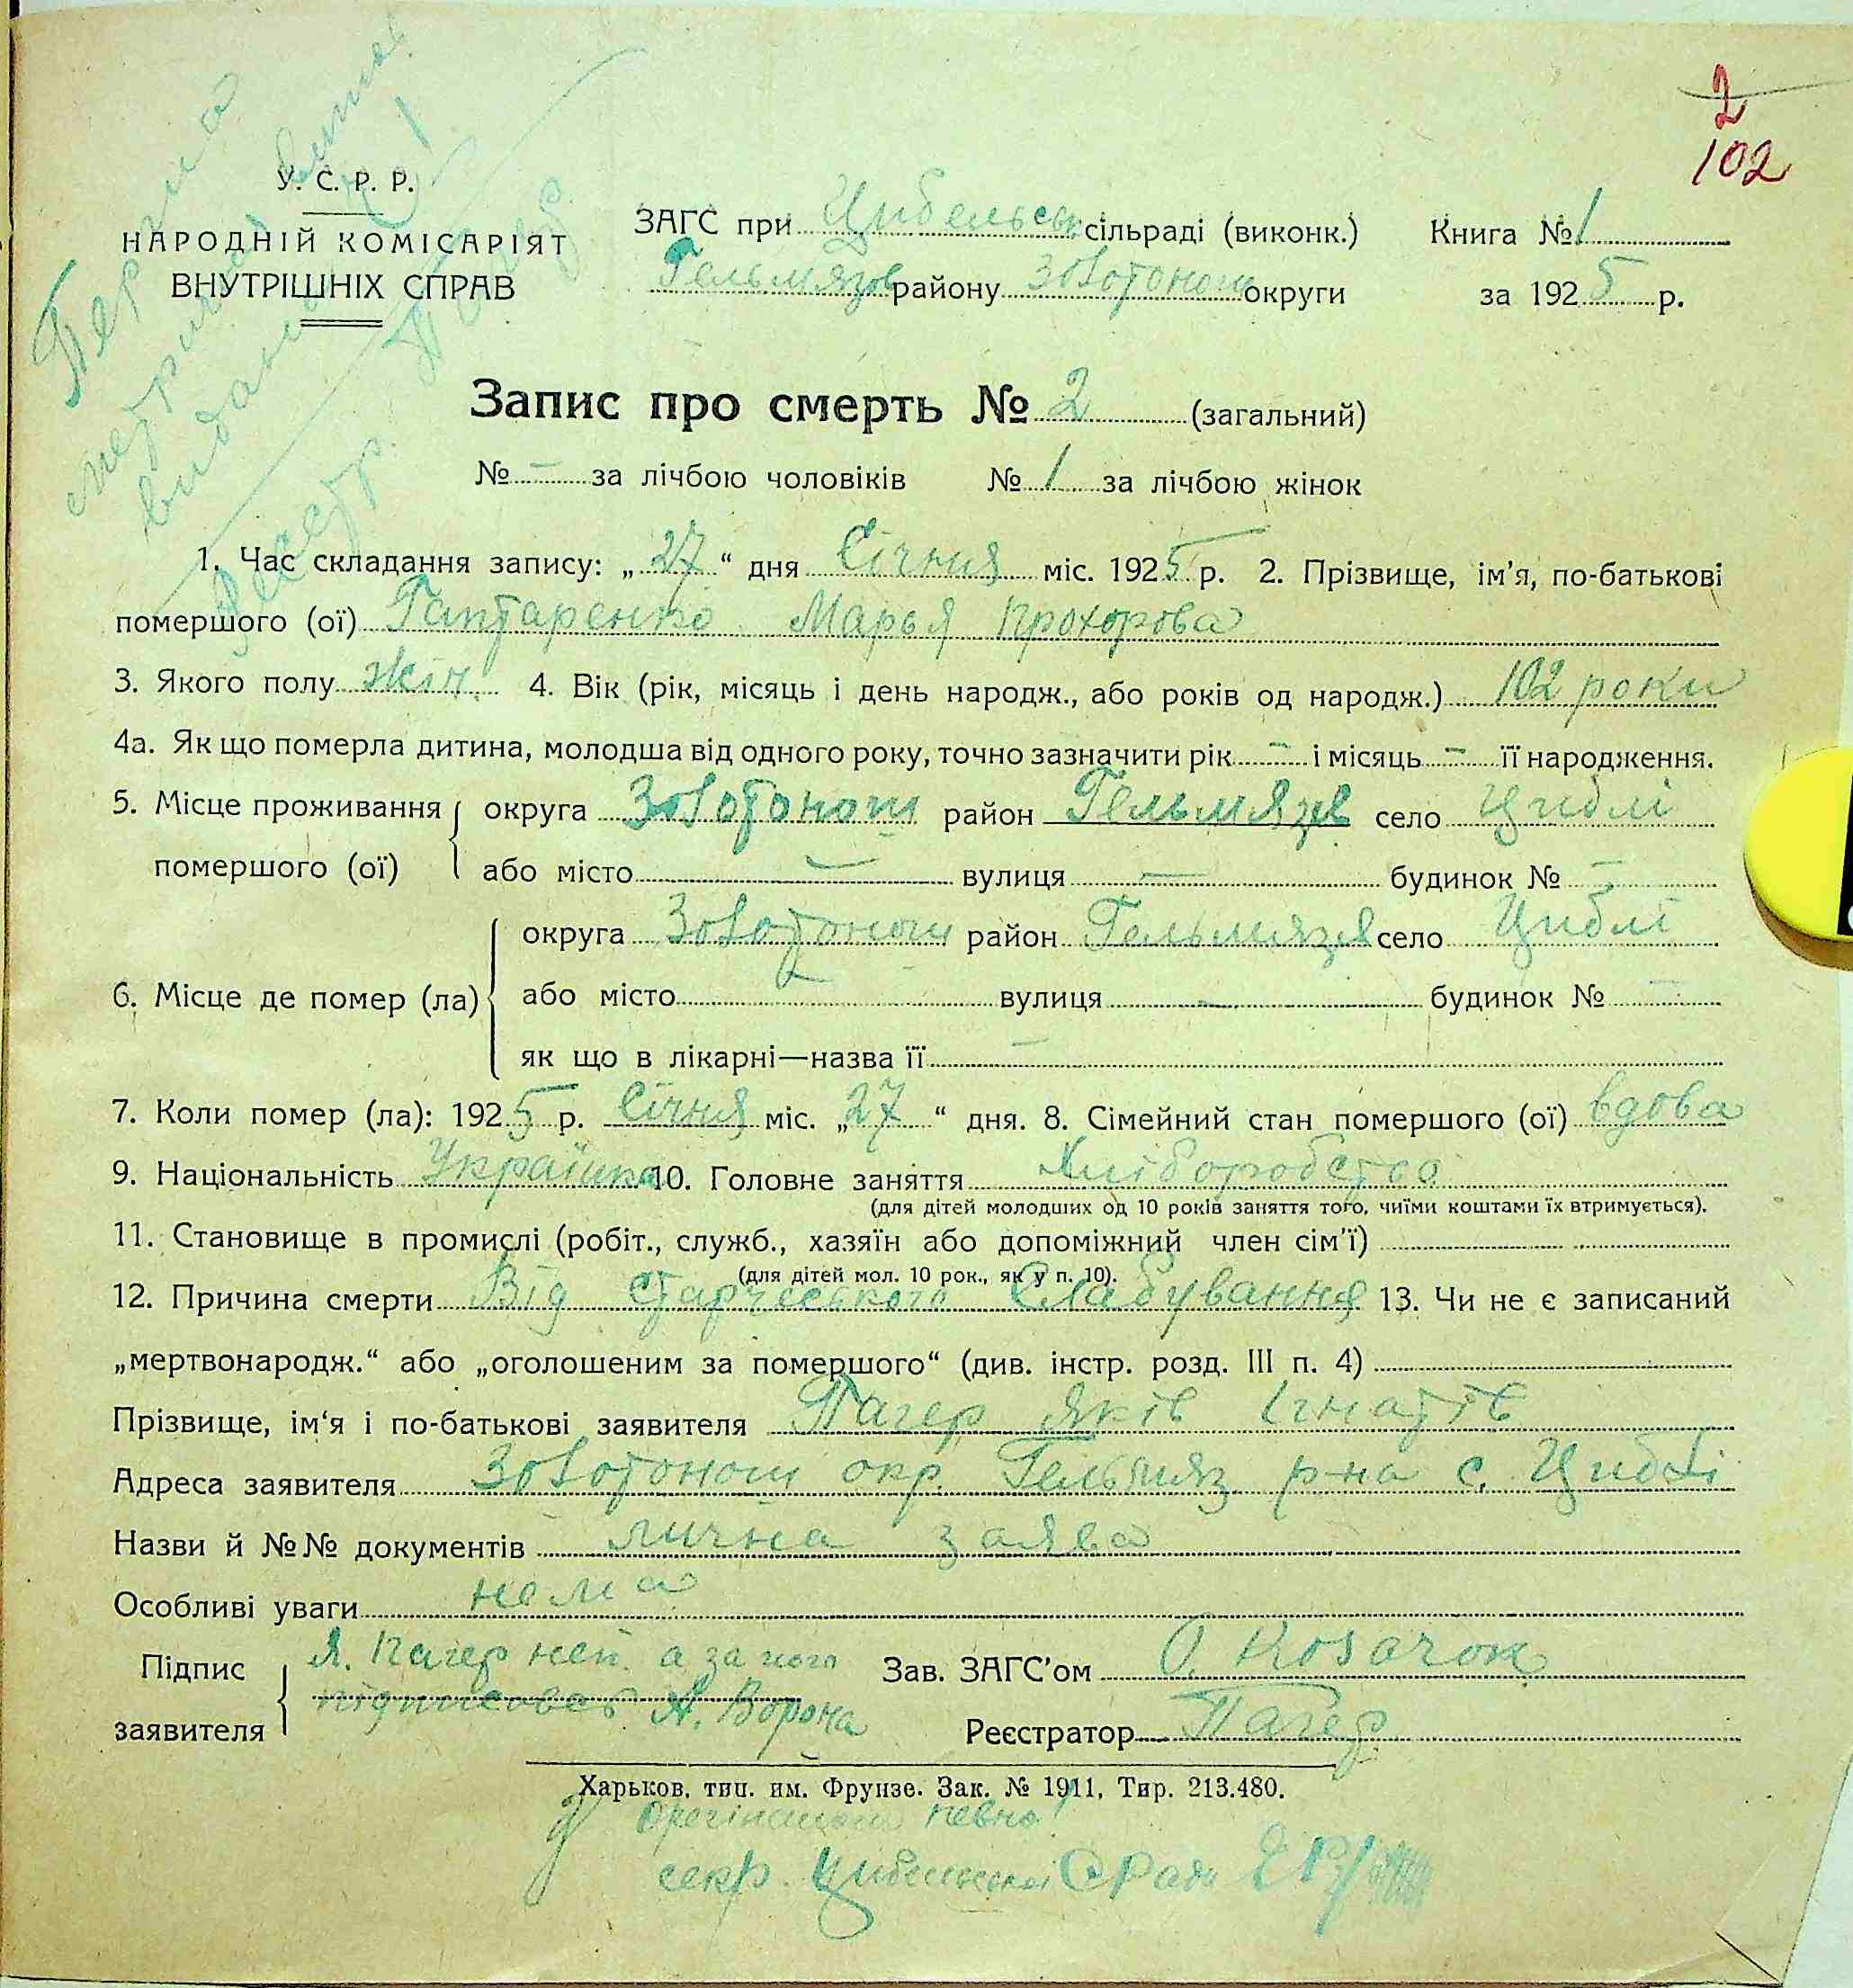 2
102
Перша
метрична витяг
видана
Реєстр. Пагер
У. С. Р. Р.
НАРОДНІЙ КОМІСАРІЯТ
ВНУТРІШНІХ СПРАВ
ЗАГС при Цибельськ сільраді (виконк.) Книга № 1
Гельмязов району Золотонош округи за 1925 р.
Запис про смерть № 2 (загальний)
№ — за лічбою чоловіків № 1 за лічбою жінок
1. Час складання запису: „27“ дня Січня міс. 1925 р. 2. Прізвище, ім'я, по-батькові
помершого (ої) Гаптаренко Марья Прохорова
3. Якого полу жін. 4. Вік (рік, місяць і день народж., або років од народж.) 102 роки
4а. Як що померла дитина, молодша від одного року, точно зазначити рік — і місяць — її народження.
5. Місце проживання помершого (ої) округа Золотонош район Гельмязев село Циблі
або місто — вулиця — будинок № —
6. Місце де помер (ла) округа Золотонош район Гельмязев село Циблі
або місто вулиця — будинок № —
як що в лікарні—назва її —
7. Коли помер (ла): 1925 р. Січня міс. „27“ дня. 8. Сімейний стан помершого (ої) вдова
9. Національність Українка 10. Головне заняття Хліборобство
(для дітей молодших од 10 років заняття того, чиїми коштами їх втримується).
11. Становище в промислі (робіт., служб., хазяїн або допоміжний член сім'ї)
(для дітей мол. 10 рок., як у п. 10).
12. Причина смерти Від старческого слабування 13. Чи не є записаний
„мертвонародж.“ або „оголошеним за помершого“ (див. інстр. розд. III п. 4)
Прізвище, ім'я і по-батькові заявителя Пагер Яків Ігнатів
Адреса заявителя Золотонош окр. Гельмяз р-на с. Циблі
Назви й №№ документів лична заява
Особливі уваги нема
Підпис заявителя Я. Пагер неп. а за нього
підписовсь А. Ворона
Зав. ЗАГС'ом О. Козачок
Реєстратор Пагер
Харьков, тип. им. Фрунзе. Зак. № 1911, Тир. 213.480.
З орегіналом певно!
секр. Цибельської С Ради